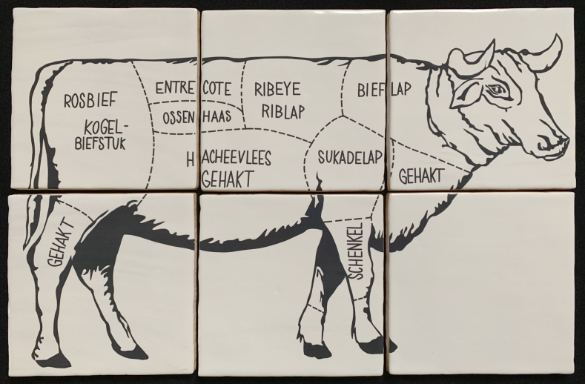 ROSBIEF
KOGEL-
BIEFSTUK
ENTRECOTE
OSSENHAAS
RIBEYE
RIBLAP
BIEFLAP
HACHEEVLEES
GEHAKT
SUKADELAP
GEHAKT
GEHAKT
SCHENKEL